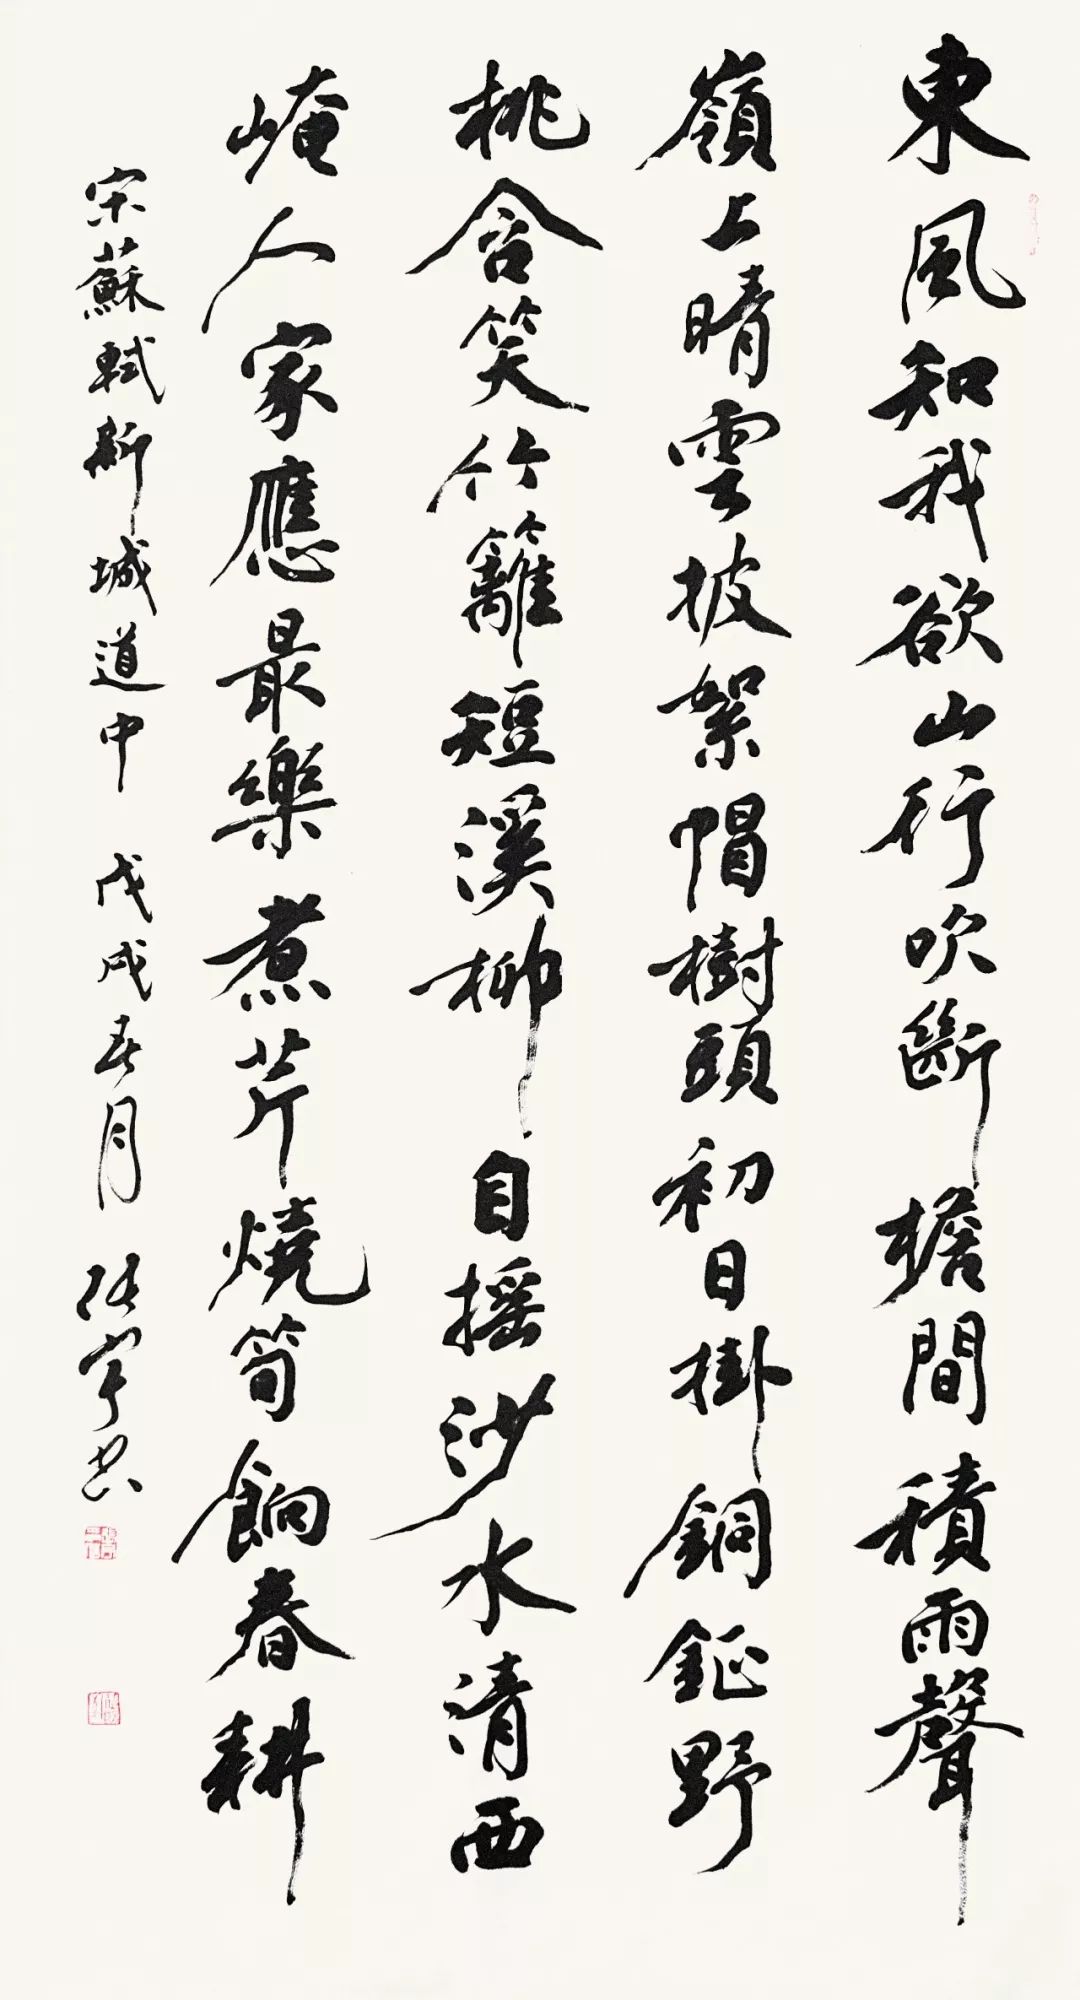 東風知我欲山行吹斷檐間積雨聲
嶺上晴雲披絮帽樹頭初日掛銅鉦野
桃含笑竹籬短溪柳自摇沙水清西
崦人家應最樂煮芹燒筍餉春耕
宋蘇軾新城道中 戊戌春月 張宇书